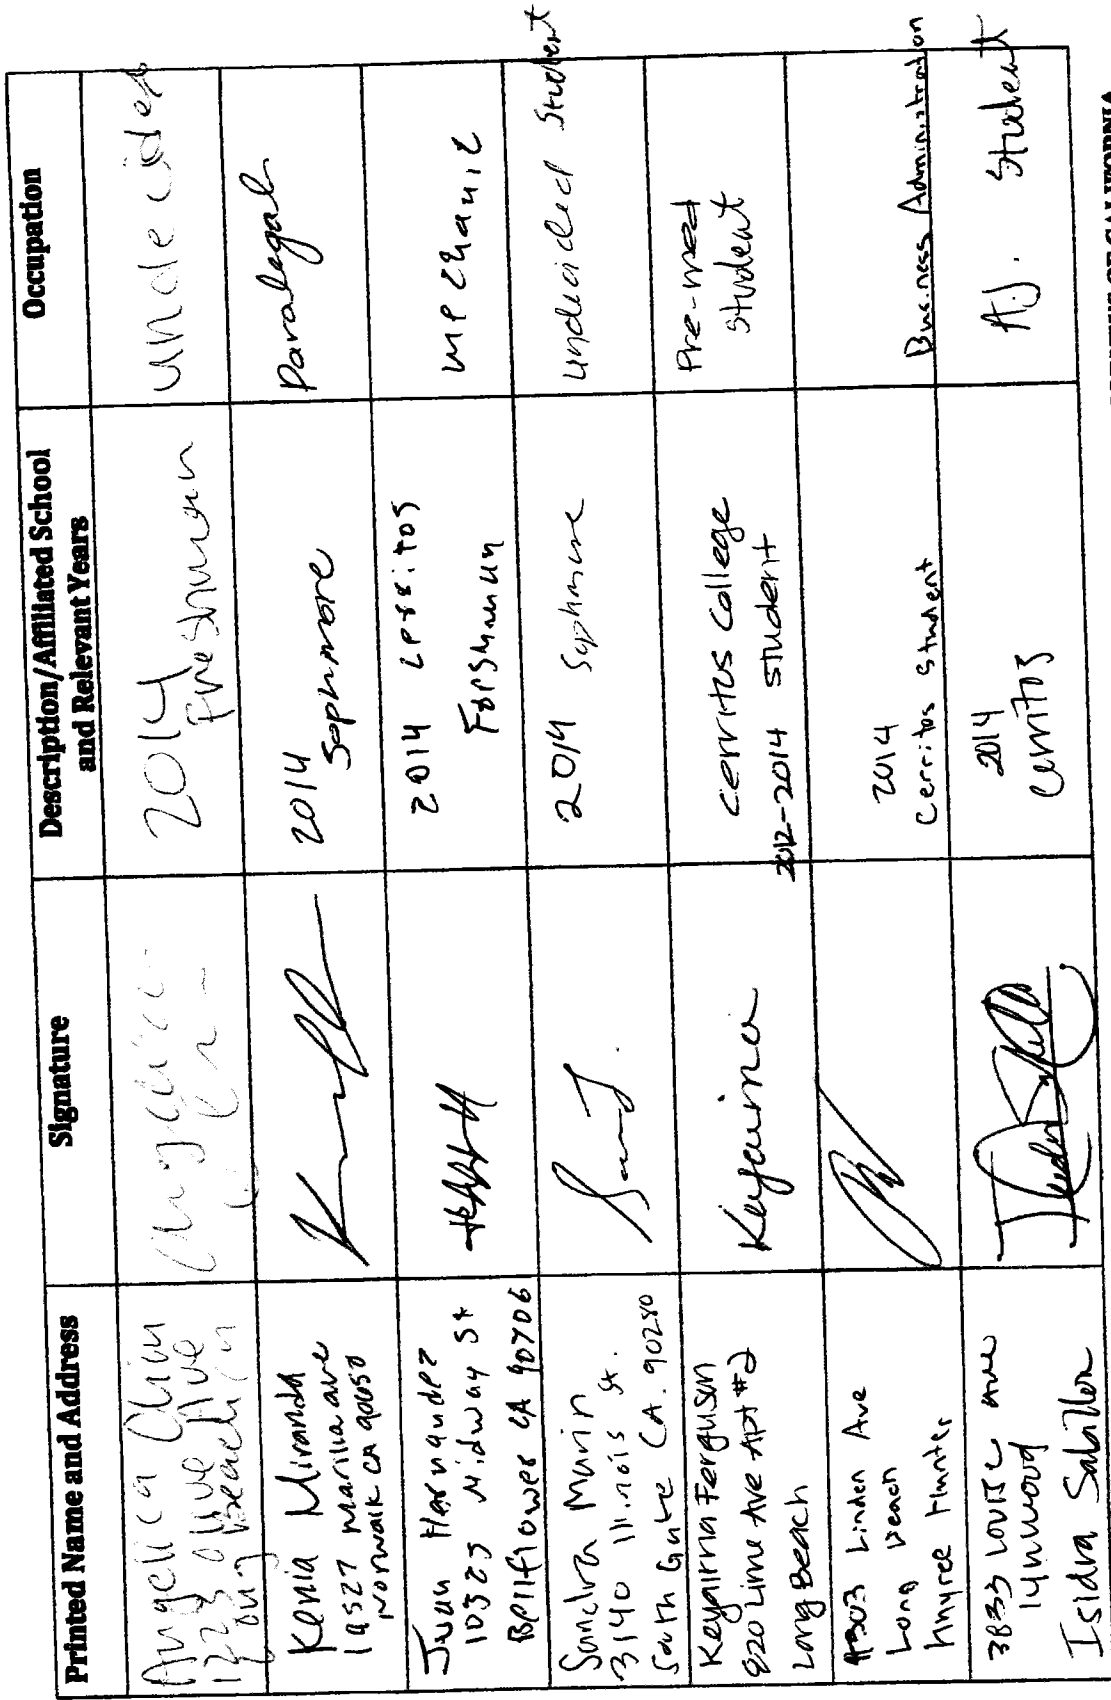 Printed Name and Address
Signature
Description/Affiliated School
and Relevant Years
Occupation
Angelica
1223 Olive Ave
Long Beach
2014
Freshman
undecided
Kenia Miranda
Marilla ave
Norwalk CA 90650
2014
Sophmore
Paralegal
Juan Hernandez
10323 Midway St
Bellflower CA 90706
2014 Cerritos
Freshman
mechanic
Sandra Marin
3140 Illinois St.
South Gate CA. 90280
2014 Sophmore
undecided Student
Keyairra Ferguson
820 Lime Ave Apt #2
Long Beach
Cerritos College
2012-2014 student
Pre-med
student
Linden Ave
Long Beach
Hunter
2014
Cerritos Student
Business Administration
3833 Louise ave
lynwood
Isidra
2014
Cerritos
A.J. Student